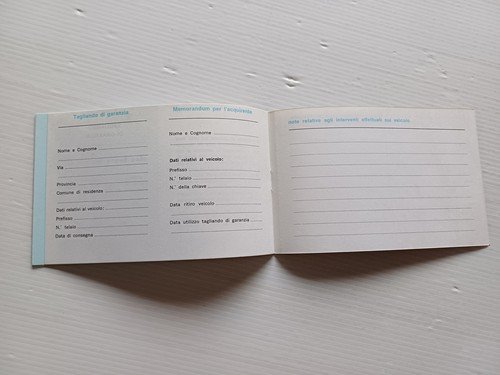 Tagliando di garanzia
Nome e Cognome
Via
Provincia
Comune di residenza
Dati relativi al veicolo:
Prefisso
N.° telaio
Data di consegna
Memorandum per l'acquirente
Nome e Cognome
Dati relativi al veicolo:
Prefisso
N.° telaio
N.° della chiave
Data ritiro veicolo
Data utilizzo tagliando di garanzia
note relative agli interventi effettuati sul veicolo